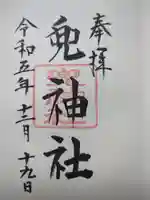 奉拝
兎神社
令和五年十二月十九日